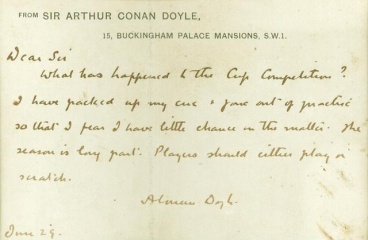 FROM SIR ARTHUR CONAN DOYLE,
15, BUCKINGHAM PALACE MANSIONS, S.W.1.
Dear Sir
What has happened to the Cup Competition?
I have packed up my cue & gone out of practice
so that I fear I have little chance in the matter. The
season is long past. Players should either play or
scratch.
A Conan Doyle
June 29.